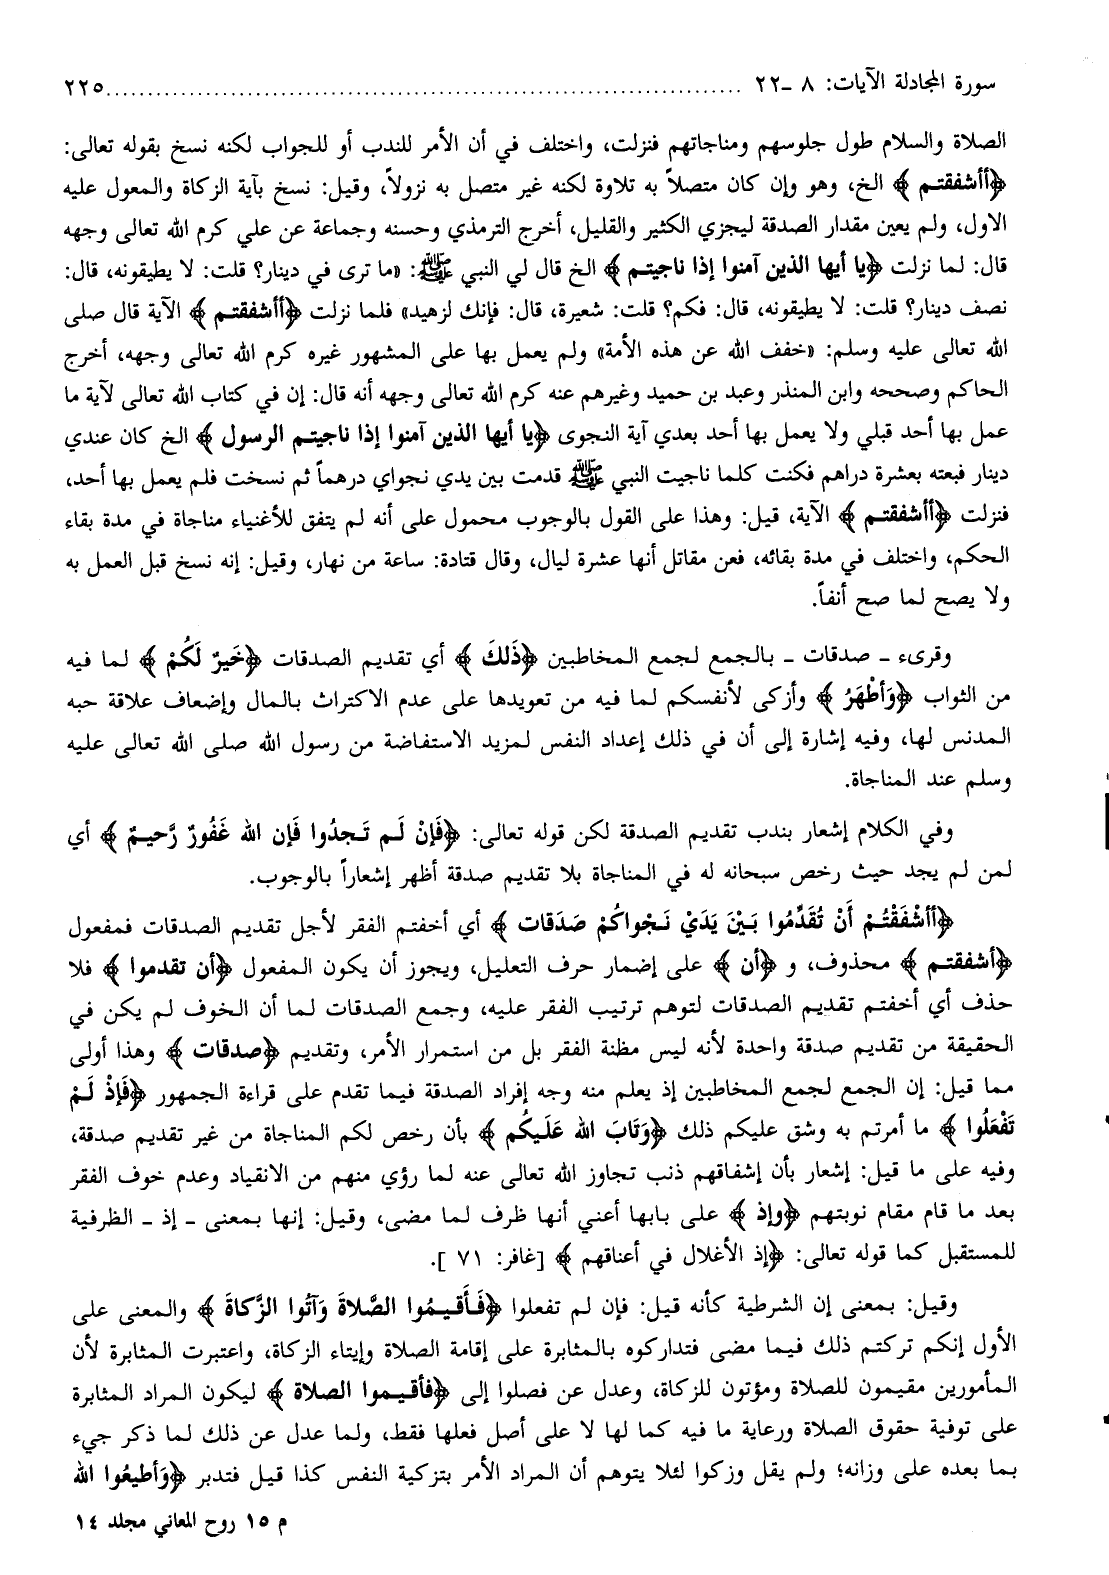 سورة المجادلة الآيات: ٨ _٢٢ ........................................................................... ٢٢٥
الصلاة والسلام طول جلوسهم ومناجاتهم فنزلت، واختلف في أن الأمر للندب أو للجواب لكنه نسخ بقوله تعالى:
﴿أأشفقتم﴾ الخ، وهو وإن كان متصلاً به تلاوة لكنه غير متصل به نزولاً، وقيل: نسخ بآية الزكاة والمعول عليه
الاول، ولم يعين مقدار الصدقة ليجزي الكثير والقليل، أخرج الترمذي وحسنه وجماعة عن علي كرم الله تعالى وجهه
قال: لما نزلت ﴿يا أيها الذين آمنوا إذا ناجيتم﴾ الخ قال لي النبي ﷺ: «ما ترى في دينار؟ قلت: لا يطيقونه، قال:
نصف دينار؟ قلت: لا يطيقونه، قال: فكم؟ قلت: شعيرة، قال: فإنك لزهيد» فلما نزلت ﴿أأشفقتم﴾ الآية قال صلى
الله تعالى عليه وسلم: «خفف الله عن هذه الأمة» ولم يعمل بها على المشهور غيره كرم الله تعالى وجهه، أخرج
الحاكم وصححه وابن المنذر وعبد بن حميد وغيرهم عنه كرم الله تعالى وجهه أنه قال: إن في كتاب الله تعالى لآية ما
عمل بها أحد قبلي ولا يعمل بها أحد بعدي آية النجوى ﴿يا أيها الذين آمنوا إذا ناجيتم الرسول﴾ الخ كان عندي
دينار فبعته بعشرة دراهم فكنت كلما ناجيت النبي ﷺ قدمت بين يدي نجواي درهماً ثم نسخت فلم يعمل بها أحد،
فنزلت ﴿أأشفقتم﴾ الآية، قيل: وهذا على القول بالوجوب محمول على أنه لم يتفق للأغنياء مناجاة في مدة بقاء
الحكم، واختلف في مدة بقائه، فعن مقاتل أنها عشرة ليال، وقال قتادة: ساعة من نهار، وقيل: إنه نسخ قبل العمل به
ولا يصح لما صح أنفاً.
وقرىء _ صدقات _ بالجمع لجمع المخاطبين ﴿ذَلكَ﴾ أي تقديم الصدقات ﴿خَيرٌ لَكُمْ﴾ لما فيه
من الثواب ﴿وَأطْهَرُ﴾ وأزكى لأنفسكم لما فيه من تعويدها على عدم الاكتراث بالمال وإضعاف علاقة حبه
المدنس لها، وفيه إشارة إلى أن في ذلك إعداد النفس لمزيد الاستفاضة من رسول الله صلى الله تعالى عليه
وسلم عند المناجاة.
وفي الكلام إشعار بندب تقديم الصدقة لكن قوله تعالى: ﴿فَإنْ لَم تَجدُوا فَإن الله غَفُورٌ رَّحيمٌ﴾ أي
لمن لم يجد حيث رخص سبحانه له في المناجاة بلا تقديم صدقة أظهر إشعاراً بالوجوب.
﴿أأشْفَقْتُمْ أَنْ تُقَدِّمُوا بَيْنَ يَدَيْ نَجْواكُمْ صَدَقات﴾ أي أخفتم الفقر لأجل تقديم الصدقات فمفعول
﴿أشفقتم﴾ محذوف، و ﴿أن﴾ على إضمار حرف التعليل، ويجوز أن يكون المفعول ﴿أن تقدموا﴾ فلا
حذف أي أخفتم تقديم الصدقات لتوهم ترتيب الفقر عليه، وجمع الصدقات لما أن الخوف لم يكن في
الحقيقة من تقديم صدقة واحدة لأنه ليس مظنة الفقر بل من استمرار الأمر، وتقديم ﴿صدقات﴾ وهذا أولى
مما قيل: إن الجمع لجمع المخاطبين إذ يعلم منه وجه إفراد الصدقة فيما تقدم على قراءة الجمهور ﴿فَإذْ لَمْ
تَفْعَلُوا﴾ ما أمرتم به وشق عليكم ذلك ﴿وَتَابَ الله عَلَيكُم﴾ بأن رخص لكم المناجاة من غير تقديم صدقة،
وفيه على ما قيل: إشعار بأن إشفاقهم ذنب تجاوز الله تعالى عنه لما رؤي منهم من الانقياد وعدم خوف الفقر
بعد ما قام مقام نوبتهم ﴿وإذ﴾ على بابها أعني أنها ظرف لما مضى، وقيل: إنها بمعنى _ إذ _ الظرفية
للمستقبل كما قوله تعالى: ﴿إذ الأغلال في أعناقهم﴾ [غافر: ٧١ ].
وقيل: بمعنى إن الشرطية كأنه قيل: فإن لم تفعلوا ﴿فَأَقيمُوا الصَّلاةَ وَآتُوا الزَّكاةَ﴾ والمعنى على
الأول إنكم تركتم ذلك فيما مضى فتداركوه بالمثابرة على إقامة الصلاة وإيتاء الزكاة، واعتبرت المثابرة لأن
المأمورين مقيمون للصلاة ومؤتون للزكاة، وعدل عن فصلوا إلى ﴿فأقيموا الصلاة﴾ ليكون المراد المثابرة
على توفية حقوق الصلاة ورعاية ما فيه كما لها لا على أصل فعلها فقط، ولما عدل عن ذلك لما ذكر جيء
بما بعده على وزانه؛ ولم يقل وزكوا لئلا يتوهم أن المراد الأمر بتزكية النفس كذا قيل فتدبر ﴿وَأطيعُوا الله
م ١٥ روح المعاني مجلد ١٤